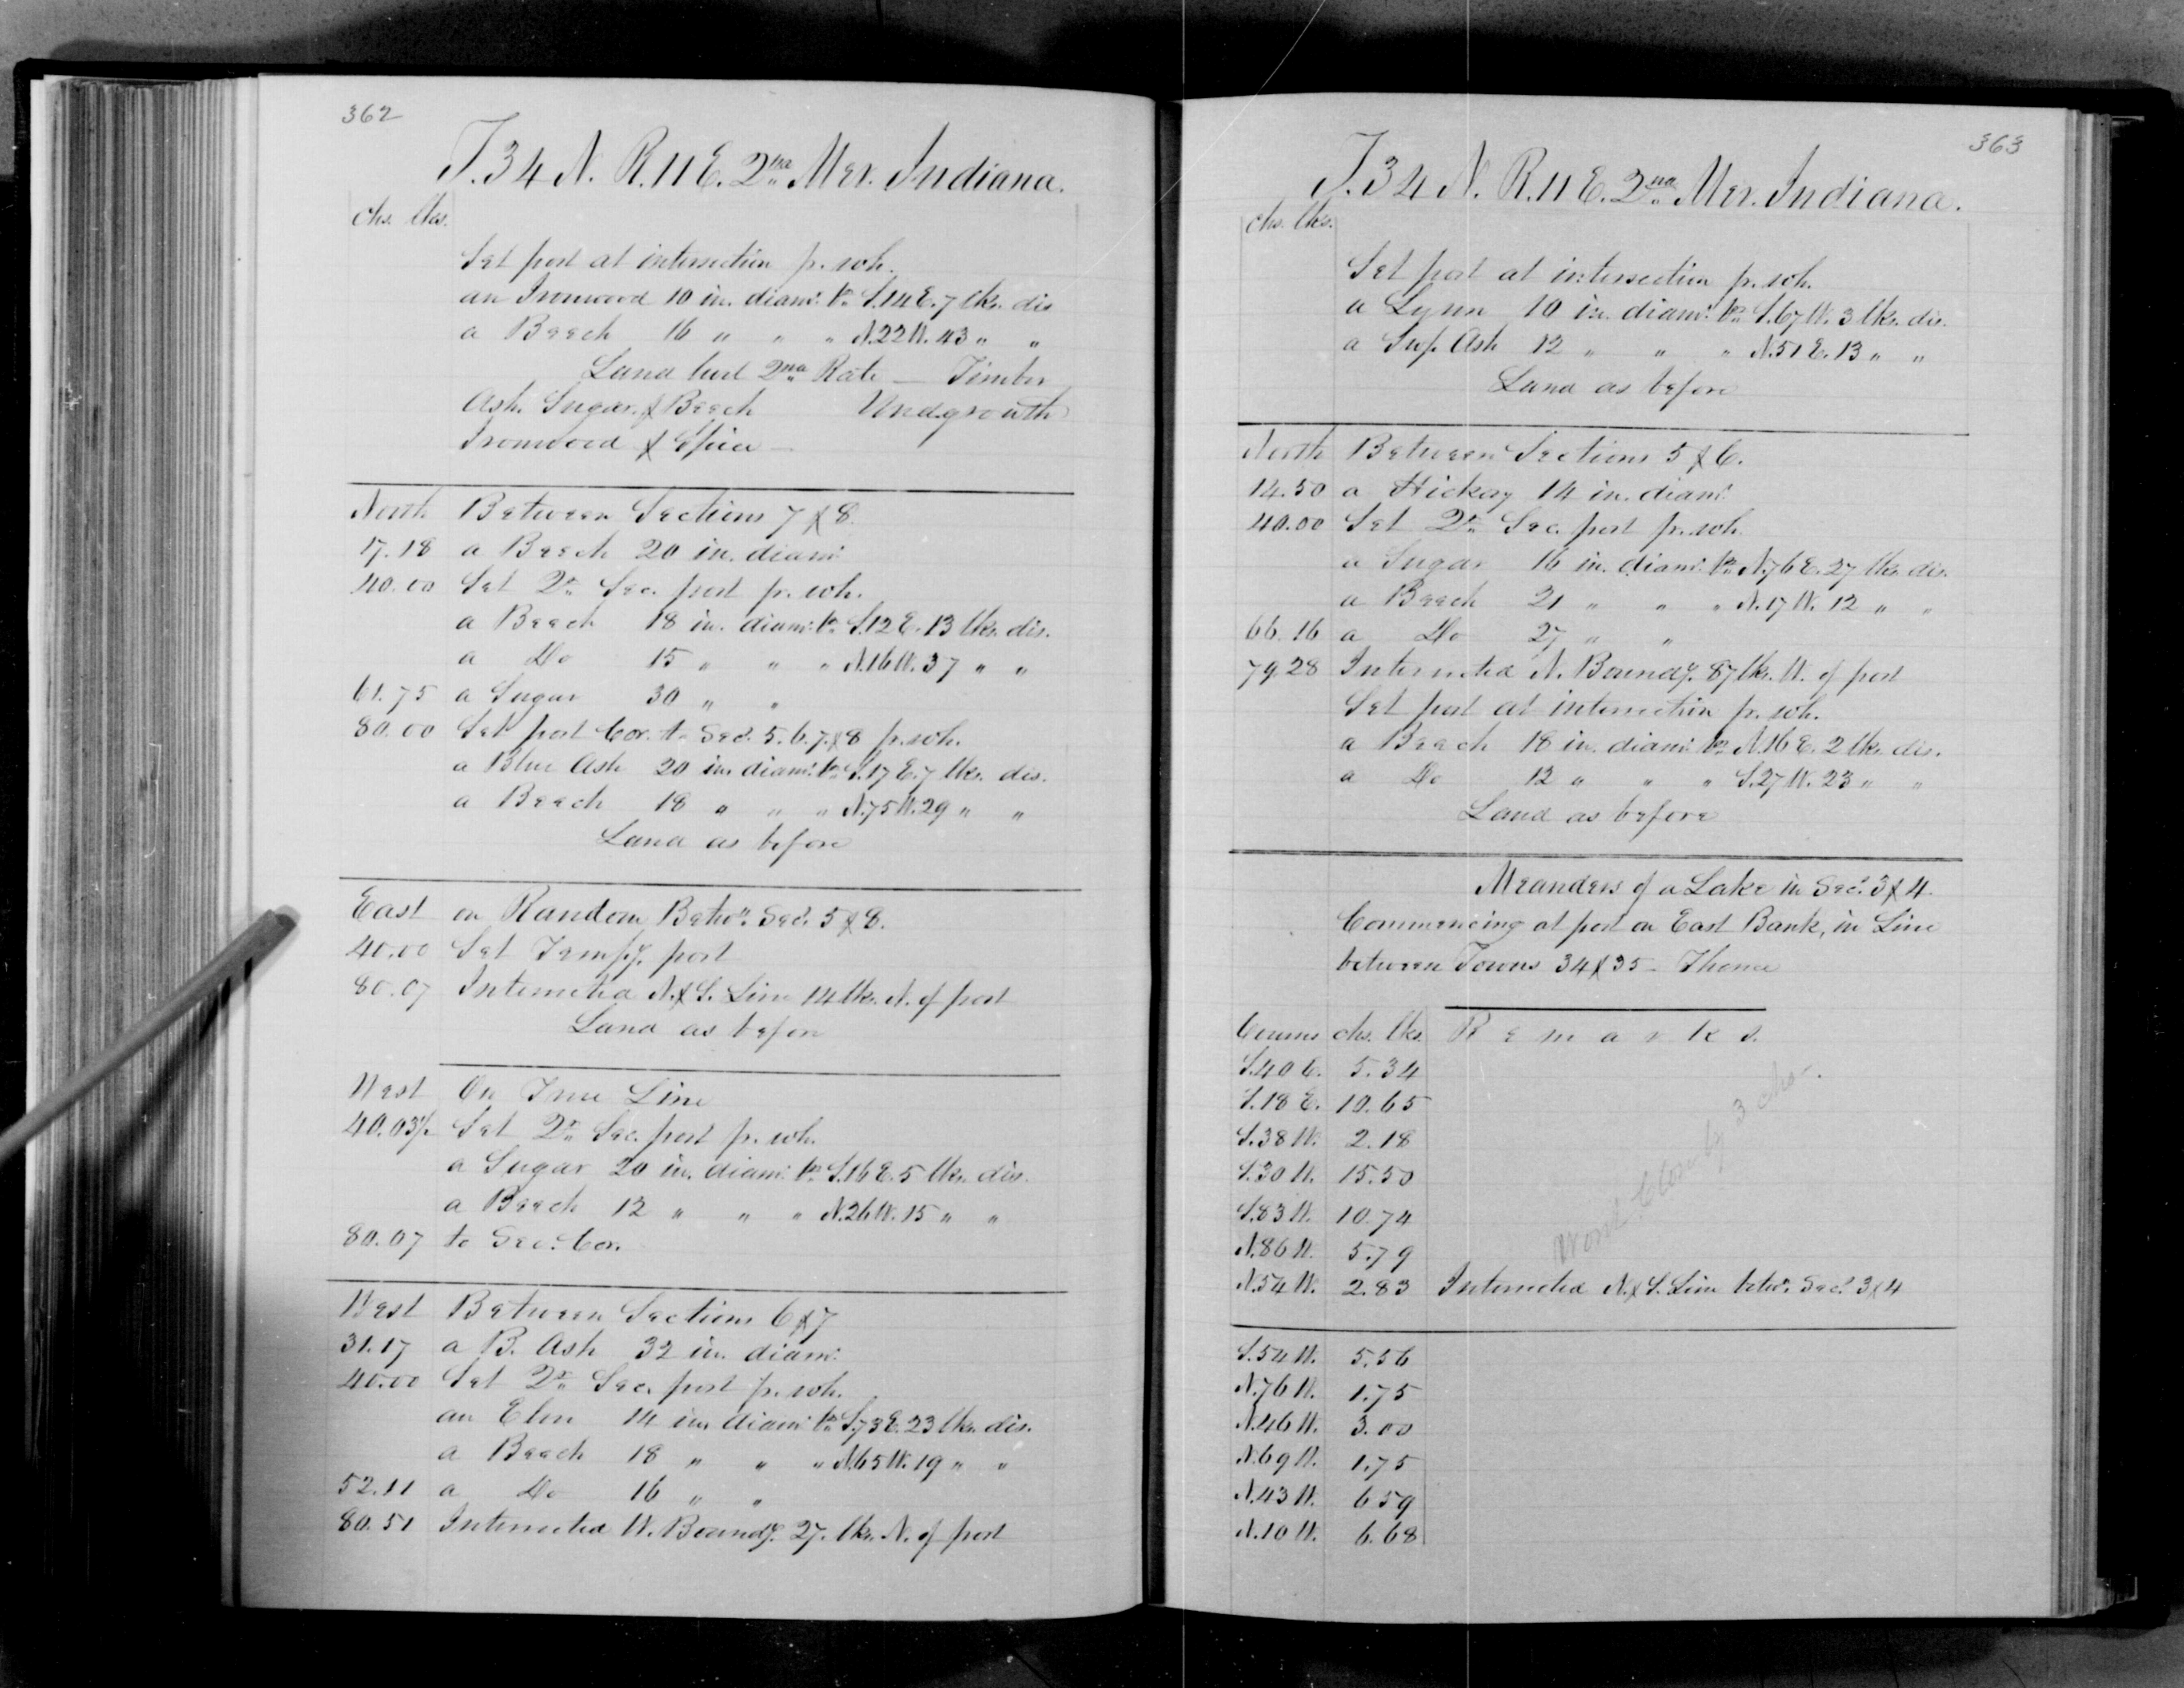 362
T. 34 N. R. 11 E. 2nd Mer. Indiana.
chs. lks.
Set post at intersection fr. wh.
an Ironwood 10 in. diamr. brs S. 14 E. 7 lks. dis
a Beech 16 " " " N. 22 W. 43 " "
Land level 2nd Rate — Timber
Ash, Sugar, & Beech Undgrowth
Ironwood & Spice —
North Between Sections 7 & 8.
17.18 a Beech 20 in. diamr.
40.00 Set Qr. Sec. post fr. wh.
a Beech 18 in. diamr. brs S. 12 E. 13 lks. dis.
a Do 15 " " " N. 16 W. 37 " "
61.75 a Sugar 30 " "
80.00 Set post Cor. to Secs. 5. 6. 7. & 8 fr. wh.
a Blue Ash 20 in. diamr. brs S. 17 E. 7 lks. dis.
a Beech 18 " " " N. 75 W. 29 " "
Land as before
East on Random Betwn. Secs. 5 & 8.
40.00 Set Tempy. post
80.07 Intersected N. & S. Line 14 lks. N. of post
Land as before
West On True Line
40.03½ Set Qr. Sec. post fr. wh.
a Sugar 20 in. diamr. brs S. 16 E. 5 lks. dis.
a Beech 12 " " " N. 26 W. 15 " "
80.07 to Sec. Cor.
West Between Sections 6 & 7
31.17 a B. Ash 32 in. diamr.
40.00 Set Qr. Sec. post fr. wh.
an Elm 14 in. diamr. brs S. 73 E. 23 lks. dis.
a Beech 18 " " " N. 65 W. 19 " "
52.11 a Do 16 " "
80.51 Intersected W. Boundy. 27. lks. N. of post
363
T. 34 N. R. 11 E. 2nd Mer. Indiana.
chs. lks.
Set post at intersection fr. wh.
a Lynn 10 in. diamr. brs S. 67 W. 3 lks. dis.
a Swp. Ash 12 " " " N. 51 E. 13 " "
Land as before
North Between Sections 5 & 6.
14.50 a Hickory 14 in. diamr.
40.00 Set Qr. Sec. post fr. wh.
a Sugar 16 in. diamr. brs N. 76 E. 27 lks. dis.
a Beech 21 " " " N. 17 W. 12 " "
66.16 a Do 27 " "
79.28 Intersected N. Boundy. 87 lks. W. of post
Set post at intersection fr. wh.
a Beech 18 in. diamr. brs N. 16 E. 2 lks. dis.
a Do 12 " " " S. 27 W. 23 " "
Land as before
Meanders of a Lake in Secs. 3 & 4.
Commencing at post on East Bank, in Line
between Towns 34 & 35 — Thence
Courses chs. lks. Remarks.
S. 40 E. 5.34
S. 18 E. 10.65
S. 38 W. 2.18
S. 30 W. 15.50
S. 83 W. 10.74
N. 86 W. 5.79
N. 54 W. 2.83 Intersected N. & S. Line betwn. Secs. 3 & 4
Wont Close by 3 chs.
S. 54 W. 5.56
N. 76 W. 1.75
N. 46 W. 3.00
N. 69 W. 1.75
N. 43 W. 6.59
N. 10 W. 6.68